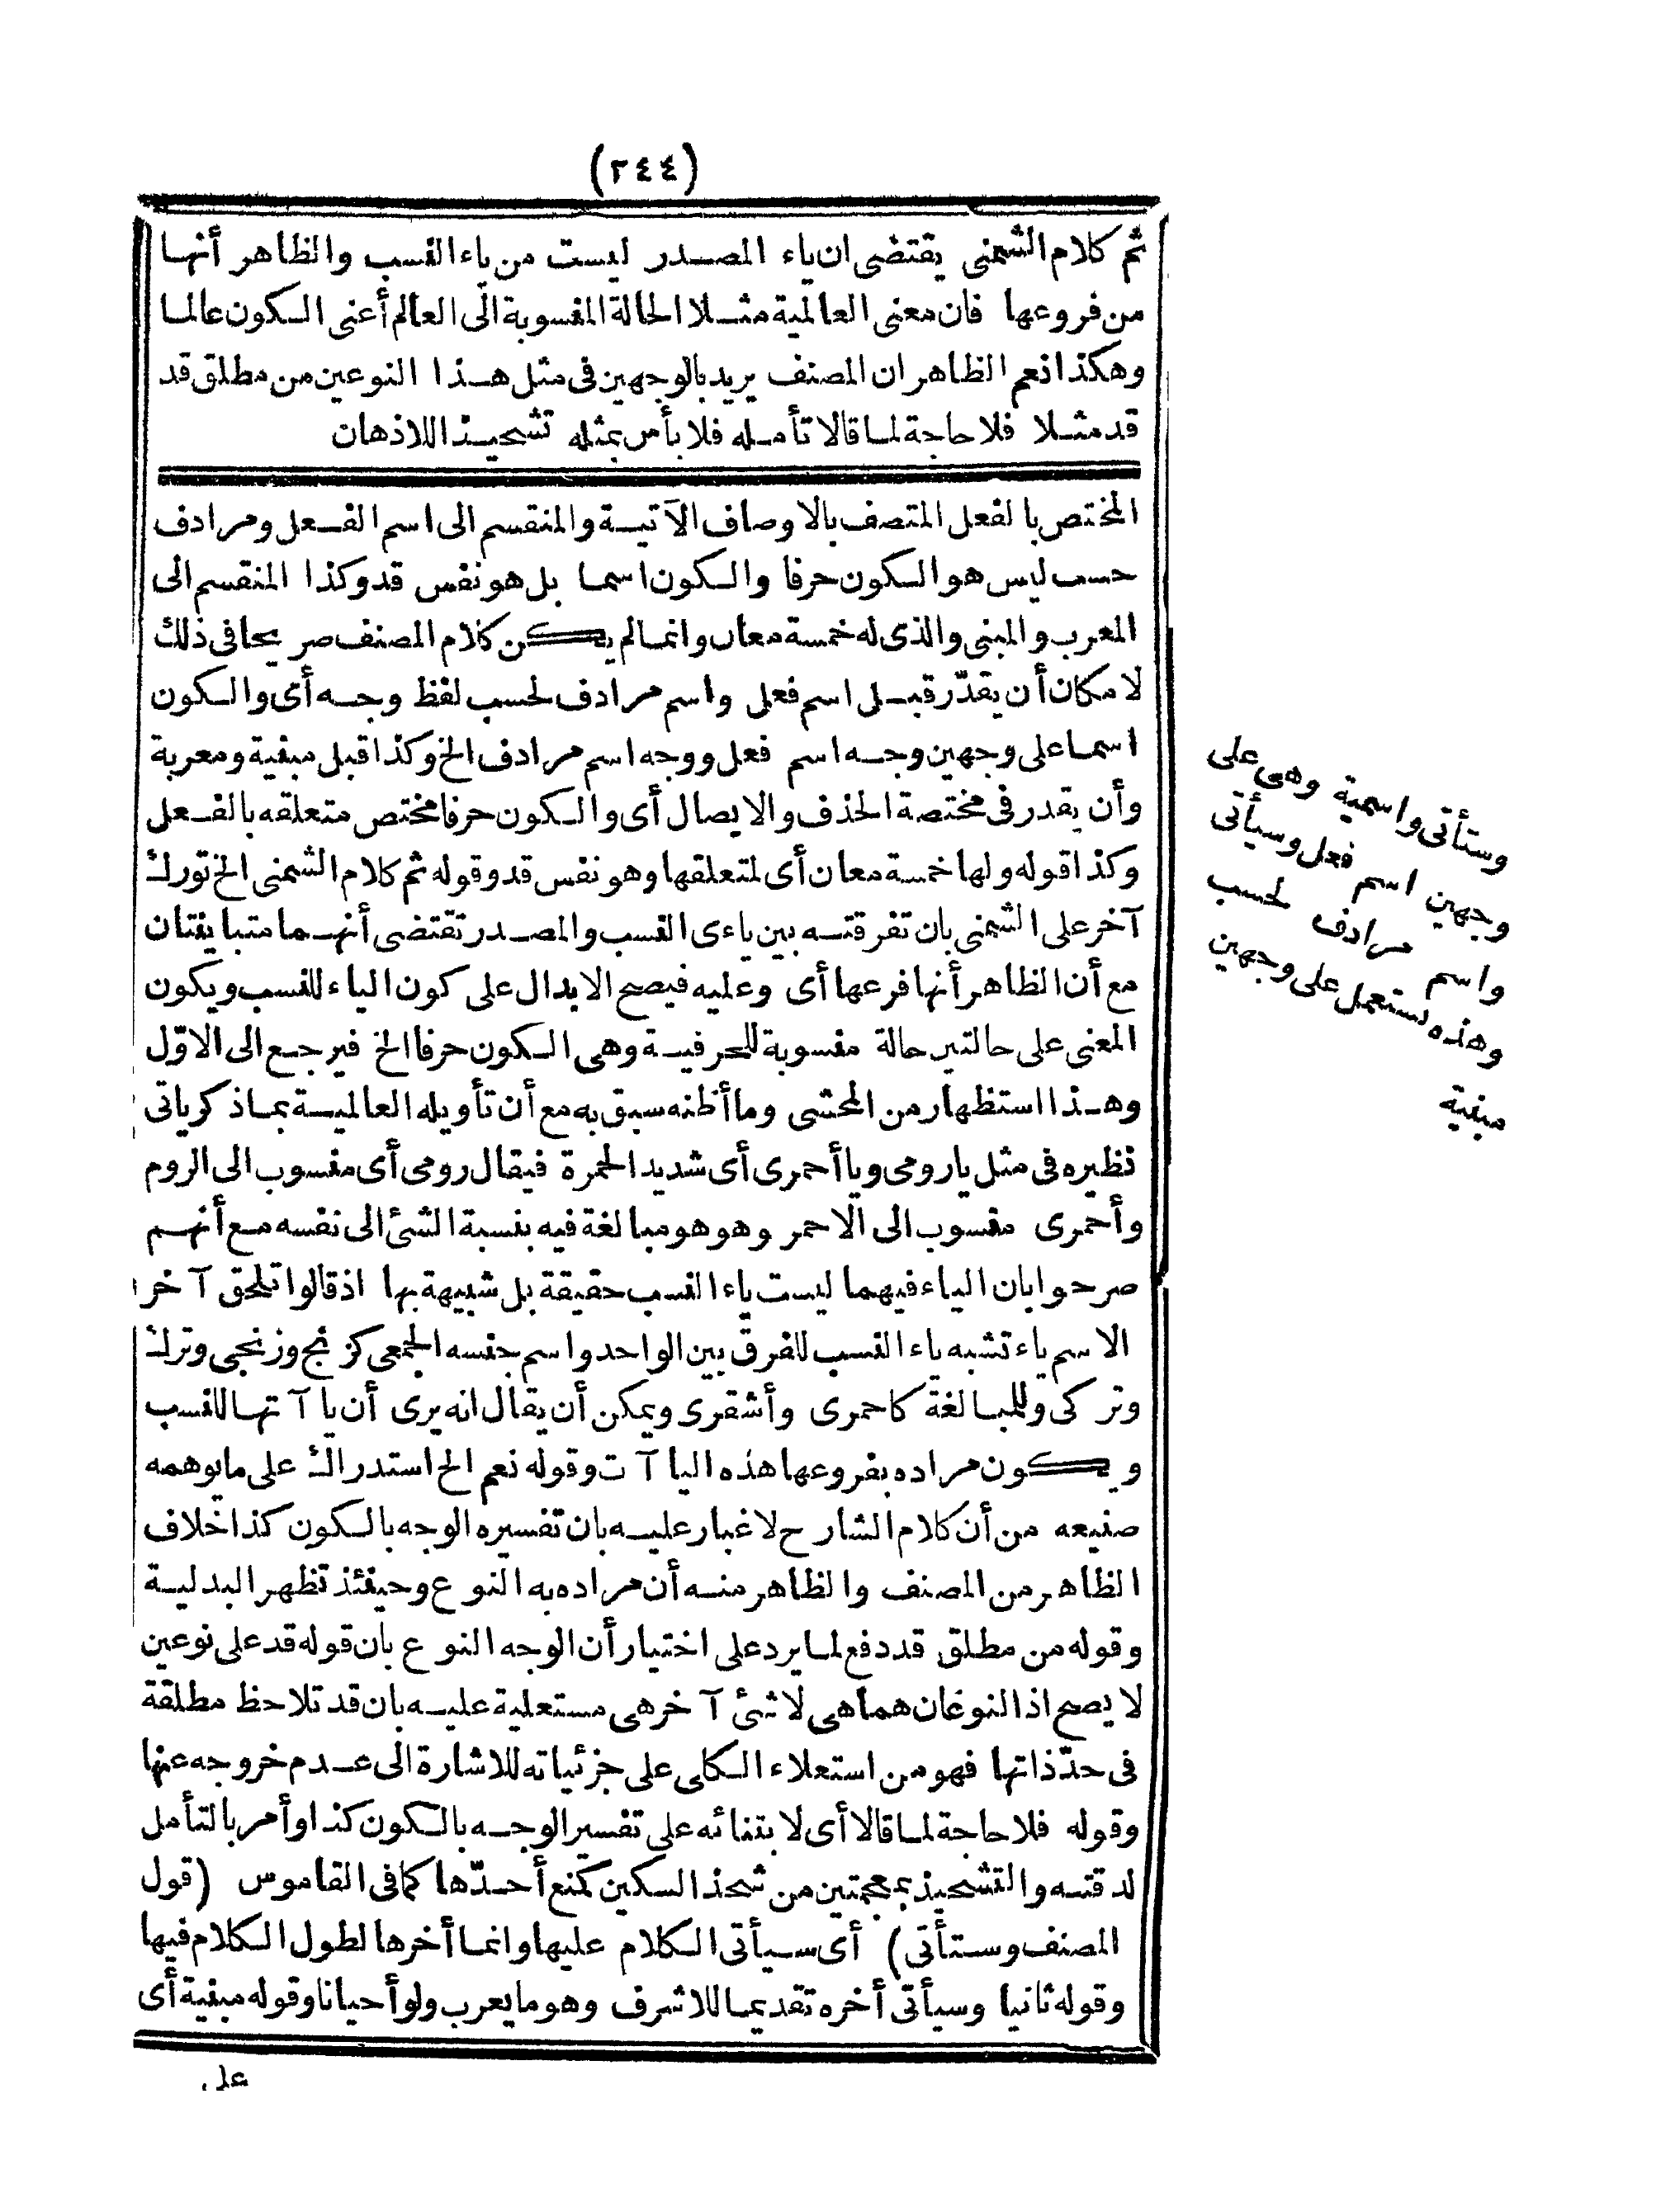 (٢٤٤)
ثم كلام الشمني يقتضى ان ياء المصدر ليست من ياء النسب والظاهر أنها
من فروعها فان معنى العالمية مثلا الحالة المنسوبة الى العالم أعنى الكون عالما
وهكذا نعم الظاهر ان المصنف يريد بالوجهين فى مثل هذا النوعين من مطلق قد
قد مثلا فلا حاجة لما قالا تأمله فلا بأس بمثله تشحيذا للاذهان
المختص بالفعل المتصف بالاوصاف الآتية والمنقسم الى اسم الفعل ومرادف
حسب ليس هو الكون حرفا والكون اسما بل هو نفس قد وكذا المنقسم الى
المعرب والمبنى والذى له خمسة معان وانما لم يكن كلام المصنف صريحا فى ذلك
لامكان أن يقدّر قبل اسم فعل واسم مرادف لحسب لفظ وجه أى والكون
اسما على وجهين وجه اسم فعل ووجه اسم مرادف الخ وكذا قبل مبنية ومعربة
وأن يقدر فى مختصة الحذف والايصال أى والكون حرفا مختص متعلقه بالفعل
وكذا قوله ولها خمسة معان أى لمتعلقها وهو نفس قد وقوله ثم كلام الشمنى الخ تورك
آخر على الشمنى بان تفرقته بين ياءى النسب والمصدر تقتضى أنهما متباينتان
مع أن الظاهر أنها فرعها أى وعليه فيصح الابدال على كون الياء للنسب ويكون
المعنى على حالتين حالة منسوبة للحرفية وهى الكون حرفا الخ فيرجع الى الاوّل
وهذا استظهار من المحشى وما أظنه سبق به مع أن تأويله العالمية بما ذكر ياتى
نظيره فى مثل يا رومى ويا أحمرى أى شديد الحمرة فيقال رومى أى منسوب الى الروم
وأحمرى منسوب الى الاحمر وهو هو مبالغة فيه بنسبة الشئ الى نفسه مع أنهم
صرحوا بان الياء فيهما ليست ياء النسب حقيقة بل شبيهة بها اذ قالوا تلحق آخر
الاسم ياء تشبه ياء النسب للفرق بين الواحد واسم جنسه الجمعى كزنج وزنجى وترك
وتركى وللمبالغة كاحمرى وأشقرى ويمكن أن يقال انه يرى أن يا آتها للنسب
ويكون مراده بفروعها هذه اليا آت وقوله نعم الخ استدراك على ما يوهمه
صنيعه من أن كلام الشارح لا غبار عليه بان تفسيره الوجه بالكون كذا خلاف
الظاهر من المصنف والظاهر منه أن مراده به النوع وحينئذ تظهر البدلية
وقوله من مطلق قد دفع لما يرد على اختيار أن الوجه النوع بان قوله قد على نوعين
لا يصح اذ النوعان هما هى لا شئ آخر هى مستعلية عليه بان قد تلاحظ مطلقة
فى حدّ ذاتها فهو من استعلاء الكلى على جزئياته للاشارة الى عدم خروجه عنها
وقوله فلا حاجة لما قالا أى لابتنائه على تفسير الوجه بالكون كذا وأمر بالتأمل
لدقته والتشحيذ بمعجمتين من شحذ السكين كمنع أحدّها كما فى القاموس (قول
المصنف وستأتى) أى سيأتى الكلام عليها وانما أخرها لطول الكلام فيها
وقوله ثانيا وسيأتى أخره تقديما للاشرف وهو ما يعرب ولو أحيانا وقوله مبنية أى
على
وستأتى واسمية وهى على
وجهين اسم فعل وسيأتى
واسم مرادف لحسب
وهذه تستعمل على وجهين
مبنية